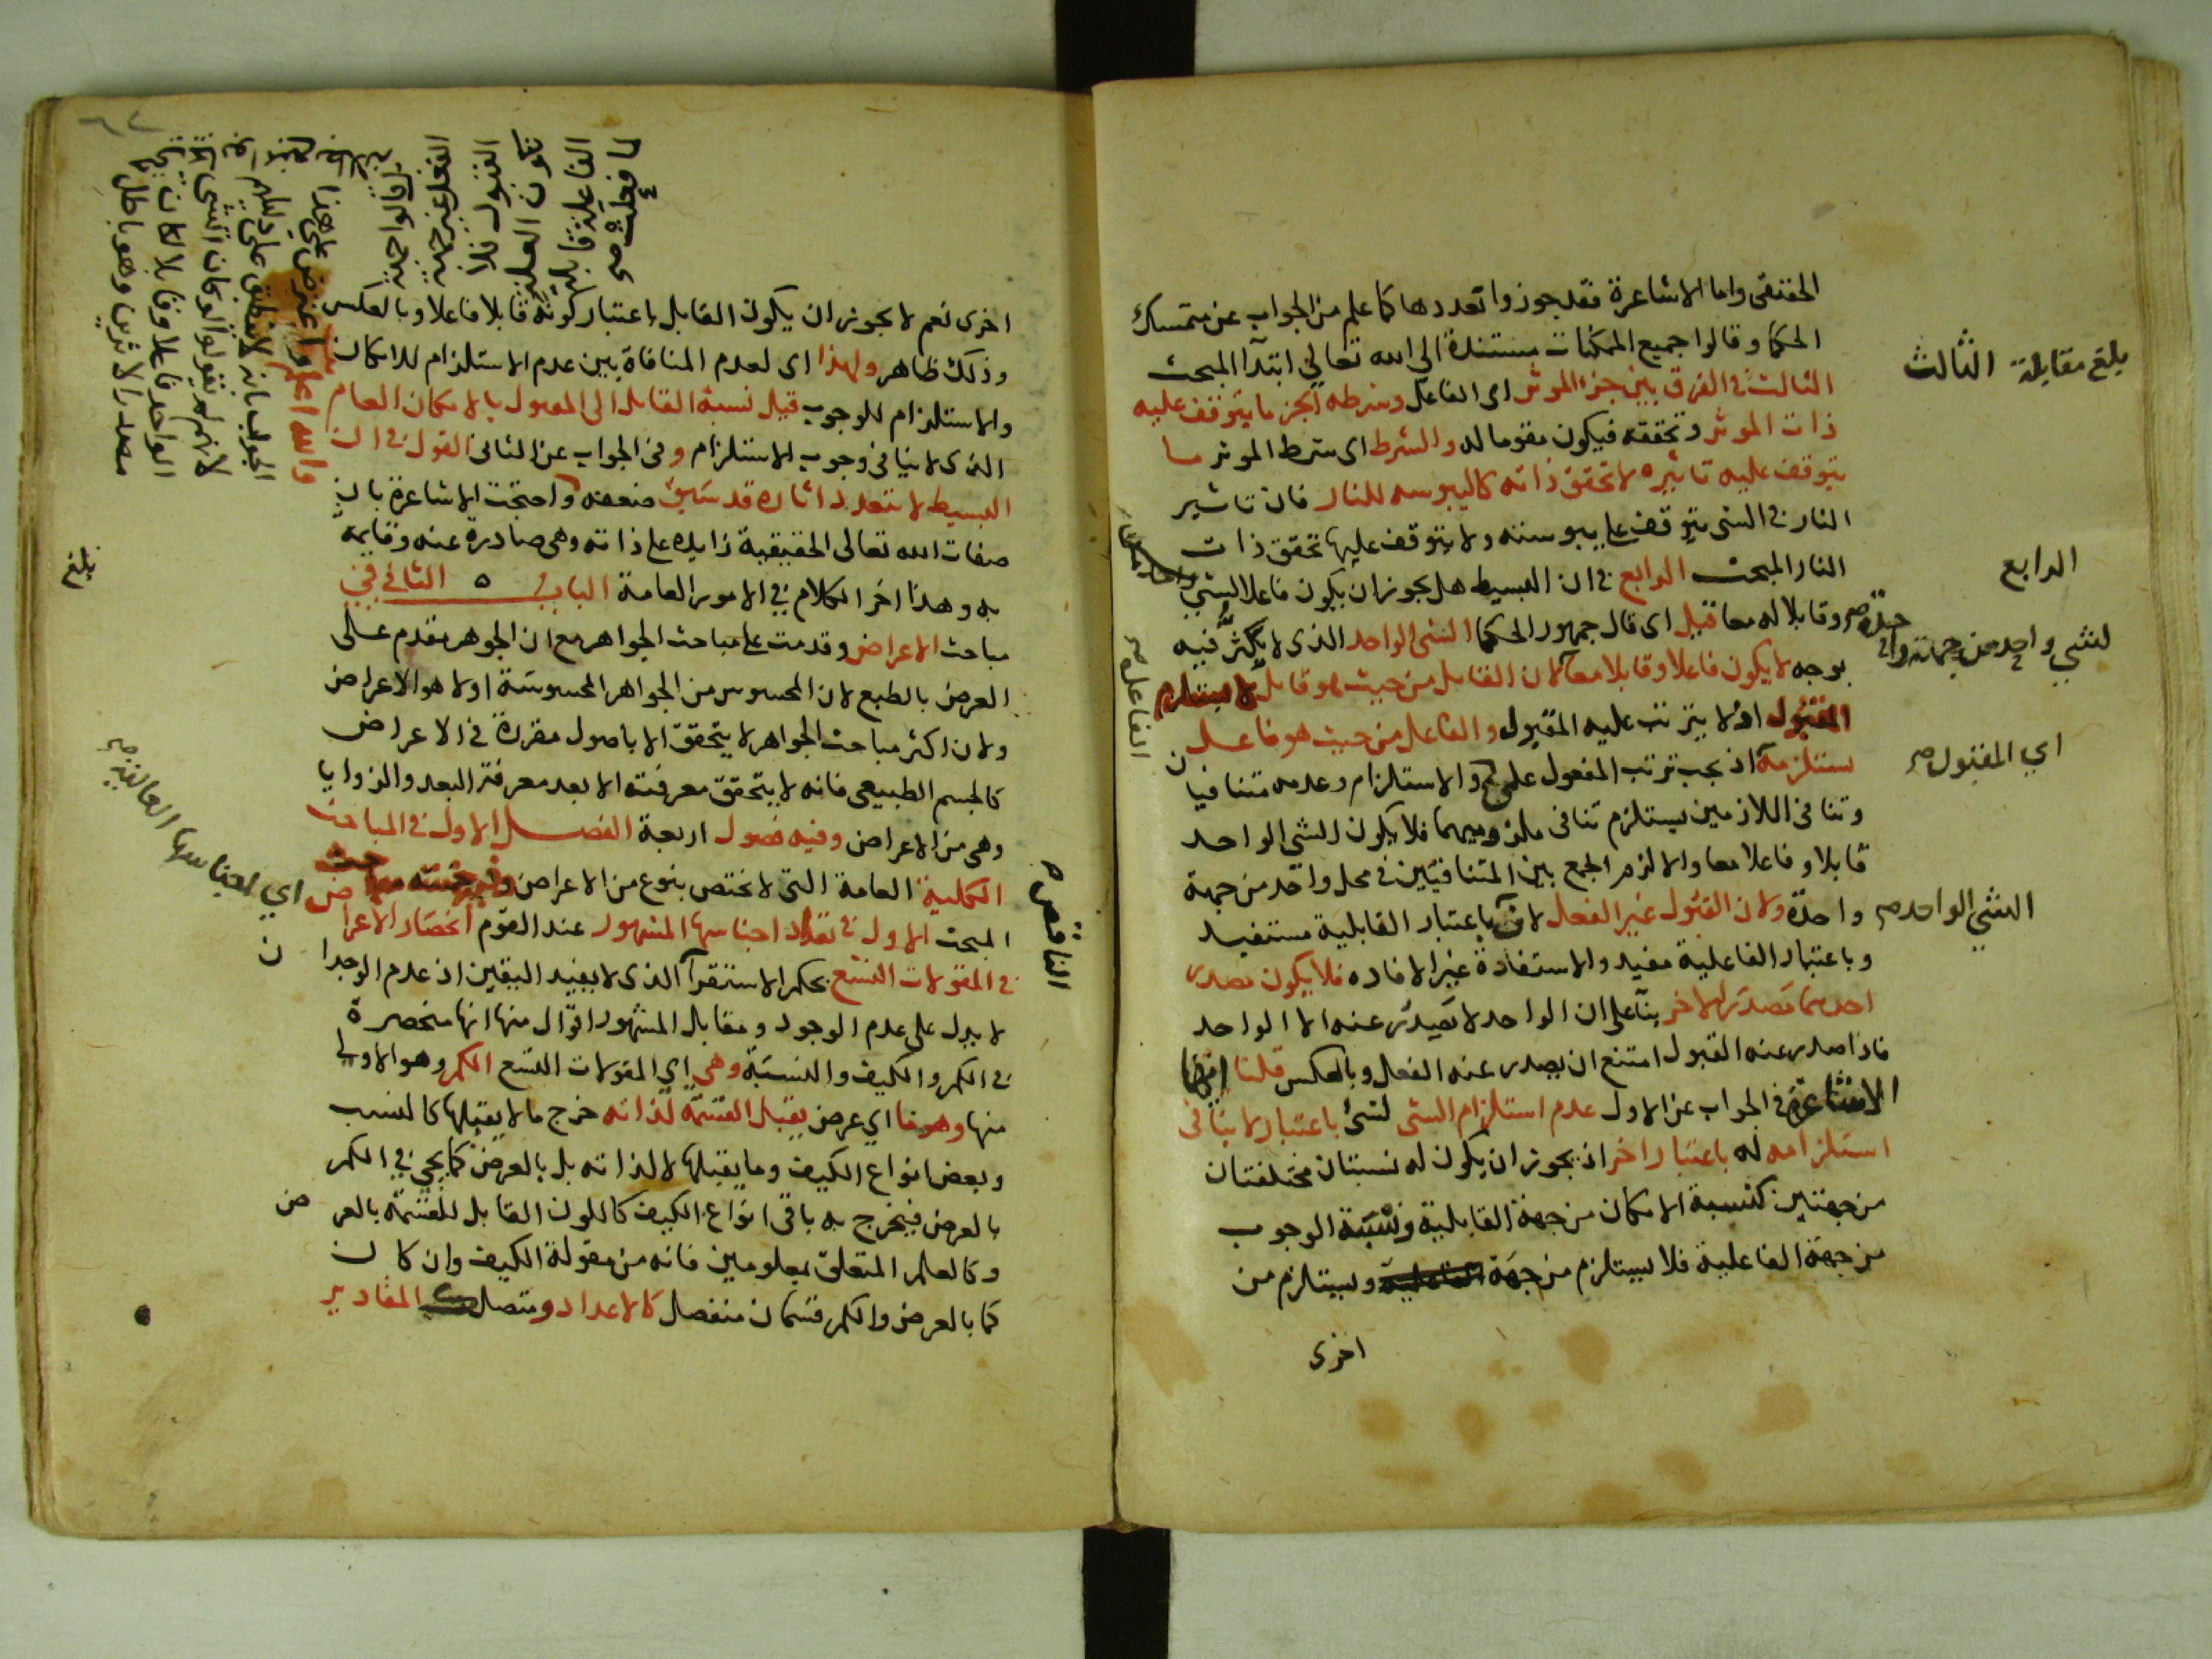 الحقيقى واما الاشاعرة فقد جوزوا تعددها كما علم من الجواب عن متمسك
الحكما وقالوا جميع الممكنات مستندة الى الله تعالي ابتدآ المبحث
الثالث في الفرق بين جزء الموثر اى الفاعل وشرطه الجز ما يتوقف عليه
ذات الموثر وتحققه فيكون مقوما له والشرط اى شرط الموثر ما
يتوقف عليه تاثيره لا تحقق ذاته كاليبوسه للنار فان تاثير
النار في الشى يتوقف على يبوسته ولا يتوقف عليها تحقق ذات
النار المبحث الرابع في ان البسيط هل يجوز ان يكون فاعلا لشيي
وقابلا له معا قيل اى قال جمهور الحكما الشى الواحد الذى لا يكثر فيه
بوجه لا يكون فاعلا وقابلا معا لان القابل من حيث هو قابل لا يستلزم
المقبول اذ لا يترتب عليه المقبول والفاعل من حيث هو فاعل
يستلزمه اذ يجب ترتب المفعول على والاستلزام وعدمه متنافيان
وتنافى اللازمين يستلزم تنافى ملزوميهما فلا يكون الشى الواحد
قابلا وفاعلا معا والا لزم الجمع بين المتنافيين في محل واحد من جهة
واحدة ولان القبول غير الفعل لان باعتبار القابلية مستفيد
وباعتبار الفاعلية مفيد والاستفادة غير الافاده فلا يكون مصدر
احدهما مصدر الاخر بنآ على ان الواحد لا يصدر عنه الا الواحد
فاذا صدر عنه القبول امتنع ان يصدر عنه الفعل وبالعكس قلنا
الاشاعرة في الجواب عن الاول عدم استلزام الشى لشئ باعتبار لا ينافى
استلزامه له باعتبار اخر اذ يجوز ان يكون له نسبتان مختلفتان
من جهتين كنسبة الامكان من جهة القابلية ونسبة الوجوب
من جهة الفاعلية فلا يستلزم من جهة ويستلزم من
اخرى
بلغ مقابلة
الثالث
الرابع
لشيي واحد من جهة واحدة
اي المقبول صح
الشيي الواحد صح
الفاعل صح
اخرى نعم لا يجوز ان يكون القابل باعتبار كونه قابلا فاعلا وبالعكس
وذلك ظاهر ولهذا اى لعدم المنافاة بين عدم الاستلزام للامكان
والاستلزام للوجوب قيل نسبة القابل الى المقبول بالامكان العام
الذى لا ينافى وجوب الاستلزام وفى الجواب عن الثانى القول في ان
البسيط لا تتعدد اثاره قد سبق ضعفه واحتجت الاشاعرة بان
صفات الله تعالى الحقيقية زايدة على ذاته وهى صادرة عنه وقايمة
به وهذا اخر الكلام في الامور العامة الباب الثانى في
مباحث الاعراض وقدمت على مباحث الجواهر مع ان الجوهر مقدم على
العرض بالطبع لان المحسوس من الجواهر المحسوسة اولا هو الاعراض
ولان اكثر مباحث الجواهر لا يتحقق الا باصول مقررة في الاعراض
كالجسم الطبيعى فانه لا يتحقق معرفته الا بعد معرفة البعد والزوايا
وهى من الاعراض وفيه فصول اربعة الفصل الاول في المباحث
الكلية العامة التى لا تختص بنوع من الاعراض وفيه خمسة مباحث
المبحث الاول في تعداد اجناسها المشهور عند القوم انحصار الاعراض
في المقولات التسع بحكم الاستقرآ الذى لا يفيد اليقين اذ عدم الوجدان
لا يدل على عدم الوجود ومقابل المشهور اقوال منها انها منحصرة
في الكم والكيف والنسبة وهى اي المقولات التسع الكم وهو الاولى
منها وهو ما اي عرض يقبل القسمة لذاته خرج ما لا يقبلها كالنسب
وبعض انواع الكيف وما يقبلها لا لذاته بل بالعرض كما يجى في الكم
بالعرض فيخرج به باقى انواع الكيف كاللون القابل للقسمة بالعرض
وكالعلم المتعلق بمعلومين فانه من مقولة الكيف وان كان
كما بالعرض والكم قسمان منفصل كالاعداد ومتصل المقادير
الناقص
بلغ
اي اجناسها العالية صح
واعترض على هذا
والله اعلم
مصدر الاثرين وهو باطل